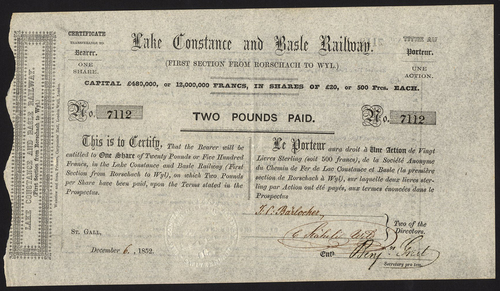 CERTIFICATE
TRANSFERABLE TO
Bearer.
ONE
SHARE.
Lake Constance and Basle Railway.
(FIRST SECTION FROM RORSCHACH TO WYL)
TITRE AU
Porteur.
UNE
ACTION.
CAPITAL £480,000, or 12,000,000 FRANCS, IN SHARES OF £20, or 500 Frcs. EACH.
No. 7112
TWO POUNDS PAID.
No. 7112
This is to Certify, That the Bearer will be
entitled to One Share of Twenty Pounds or Five Hundred
Francs, in the Lake Constance and Basle Railway (First
Section from Rorschach to Wyl), on which Two Pounds
per Share have been paid, upon the Terms stated in the
Prospectus
Le Porteur aura droit à Une Action de Vingt
Livres Sterling (soit 500 francs), de la Société Anonyme
du Chemin de Fer de Lac Constance et Basle (la première
section de Rorschach à Wyl), sur laquelle deux livres ster-
ling par Action ont été payés, aux termes énoncées dans le
Prospectus
ST. GALL,
December 6, 1852.
Two of the
Directors.
Ent
Secretary pro tem.
LAKE CONSTANCE AND BASLE RAILWAY.
First Section from Rorschach to Wyl